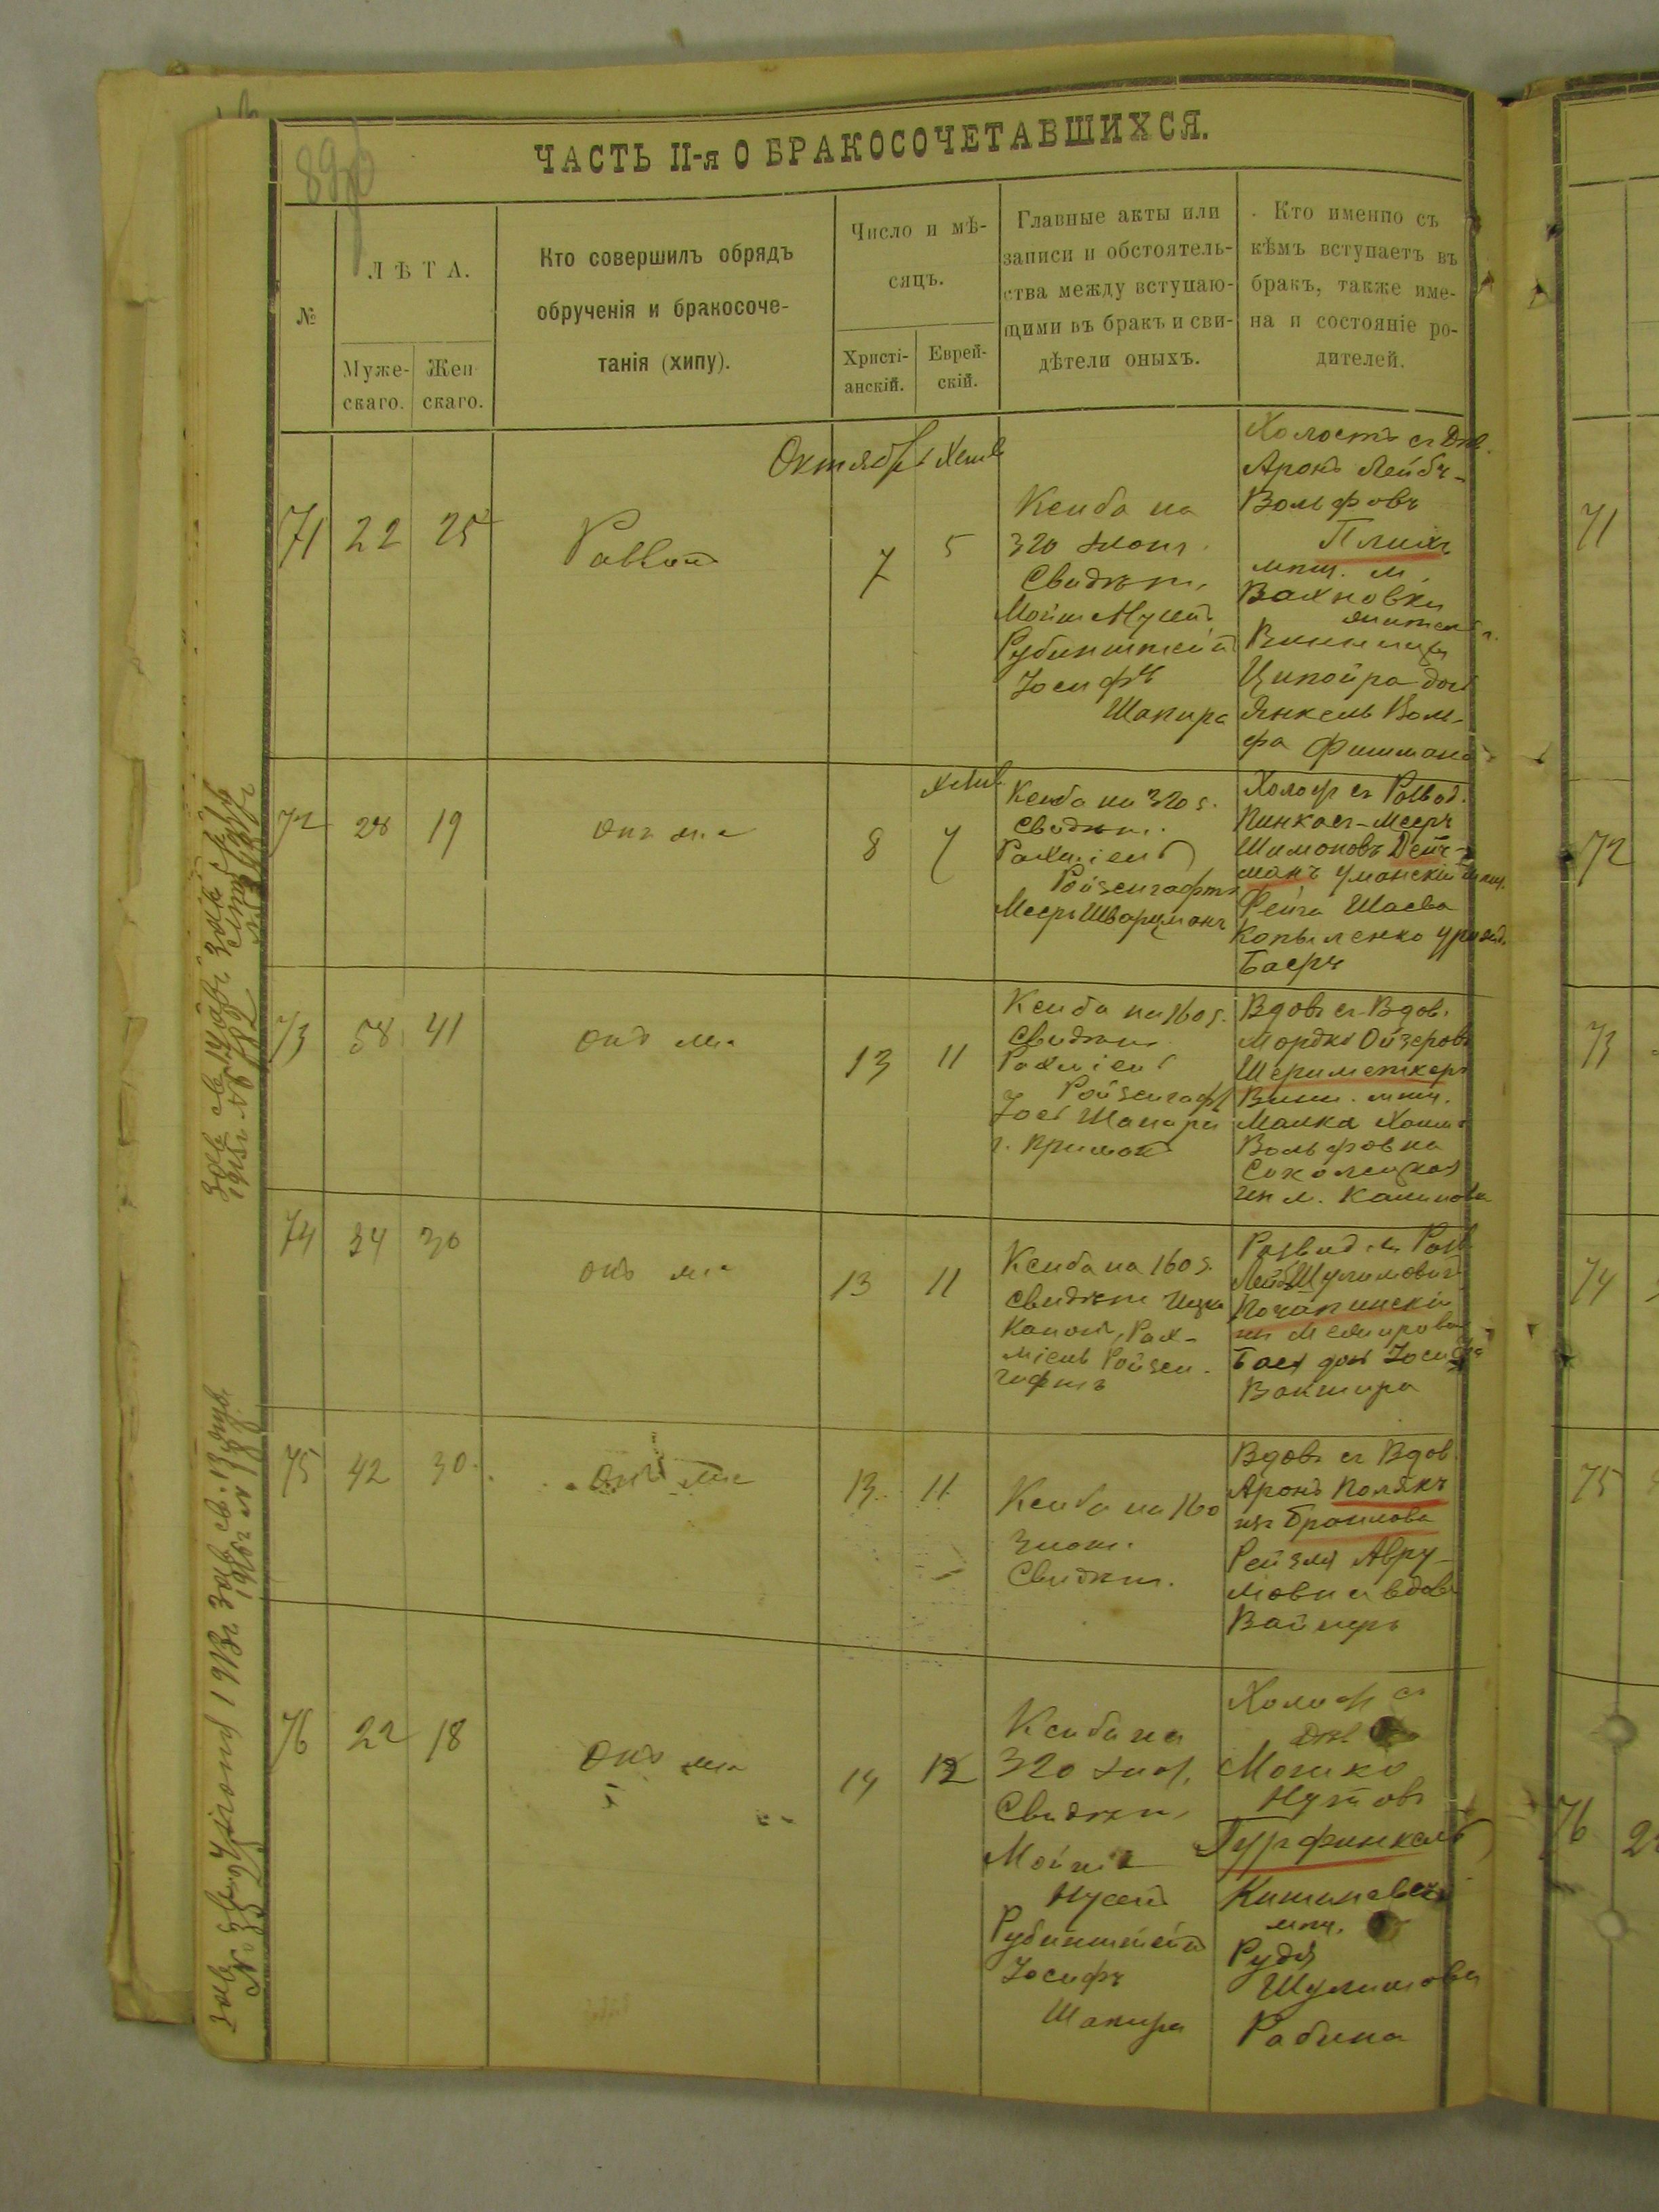 89об
ЧАСТЬ II-я О БРАКОСОЧЕТАВШИХСЯ.
№
ЛѢТА.
Муже-
скаго.
Жен
скаго.
Кто совершилъ обрядъ
обрученія и бракосоче-
танія (хипу).
Число и мѣ-
сяцъ.
Христі-
анскій.
Еврей-
скій.
Главные акты или
записи и обстоятель-
ства между вступаю-
щими въ бракъ и сви-
дѣтели оныхъ.
Кто именно съ
кѣмъ вступаетъ въ
бракъ, также име-
на и состояніе ро-
дителей.
Октябрь Хешв
71
22
25
Раввин
7
5
Ксиба на
320 злот.
Свидѣт.
Мойше Нусин
Рубинштейн
Іосифъ
Шапира
Холостъ съ Дѣв.
Аронъ Лейбъ-
Вольфовъ
Плихъ
мѣщ. м.
Вахновки
Винницы
Ципойра доч
Янкель Воль-
фа Фишмана
72
28
19
онъ же
8
Хешв
7
Ксиба на 320 з.
Свидѣт.
Рахміель
Ройзенгафтъ
Мееръ Шварцманъ
Холост съ Развод.
Пинхасъ-Мееръ
Шимоновъ Дейч-
манъ Уманскій мѣщ.
Фейга Шаева
Копыленко урожд.
Баеръ
73
58
41
онъ же
13
11
Ксиба на 160 з.
Свидѣт.
Рахміель
Ройзенгафт
Іось Шапира
Вдов съ Вдов.
Мордко Ойзеровъ
Шериметкеръ
Винн. мѣщ.
Малка Хаим
Вольфовна
Соколецкая
из м. Калиновки
74
34
30
онъ же
13
11
Ксиба на 160 з.
Свидѣт Ицко
Капоть, Рах-
міель Ройзен-
гафтъ
Развод съ Разв
Лейб Шулимовичъ
Почапинскій
из Немирова
Бася доч Іосифа
Вакшира
75
42
30
онъ же
13
11
Ксиба на 160
злот.
Свидѣт.
Вдов съ Вдов
Аронъ Полякъ
из Браилова
Рейзля Авру-
мовна вдова
Вайнеръ
76
22
18
онъ же
14
12
Ксиба на
320 злот.
Свидѣт.
Мойше
Нусин
Рубинштейн
Іосифъ
Шапира
Холост съ
Дѣв
Мошко
Нутов
Гурфинкель
Кишиневск
мѣщ.
Рудя
Шулимова
Рабина
71
72
73
74
75
76